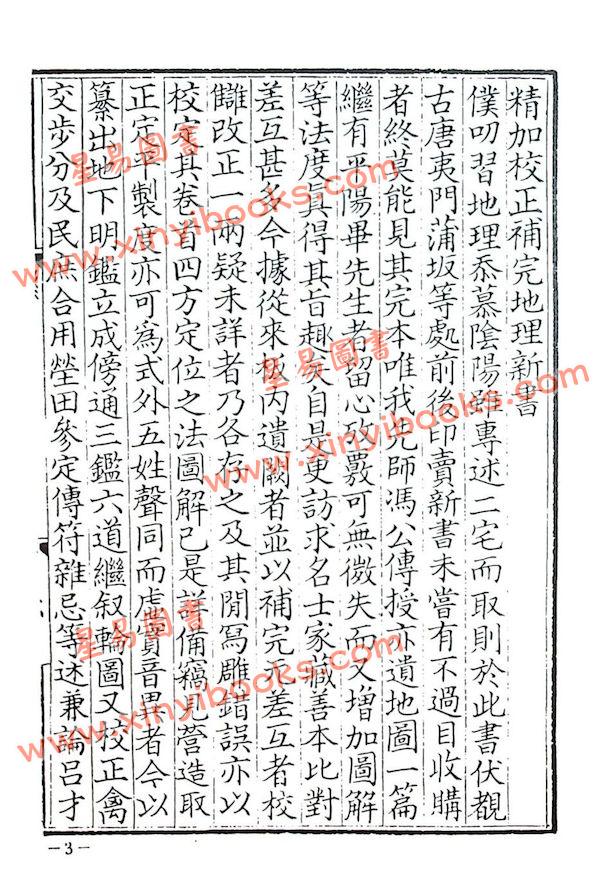 精加校正補完地理新書
僕叨習地理忝慕陰陽雖專述二宅而取則於此書伏覩
古唐夷門蒲坂等處前後印賣新書未嘗有不過目收購
者終莫能見其完本唯我先師馮公傳授亦遺地圖一篇
繼有平陽畢先生者留心攷覈可無微失而又增加圖解
等法度真得其旨趣矣自是更訪求名士家藏善本比對
差互甚多今據從來板內遺闕者並以補完元差互者校
讎改正一兩疑未詳者乃各存之及其閒寫雕錯誤亦以
校定其卷首四方定位之法圖解已是詳備竊見營造取
正定平製度亦可為式外五姓聲同而虛實音異者今以
纂出地下明鑑立成傍通三鑑六道繼叙輪圖又校正禽
交步分及民庶合用塋田參定傳符雜忌等述兼論呂才
星易圖書
www.xinyibooks.com
星易圖書
www.xinyibooks.com
星易圖書
www.xinyibooks.com
—3—